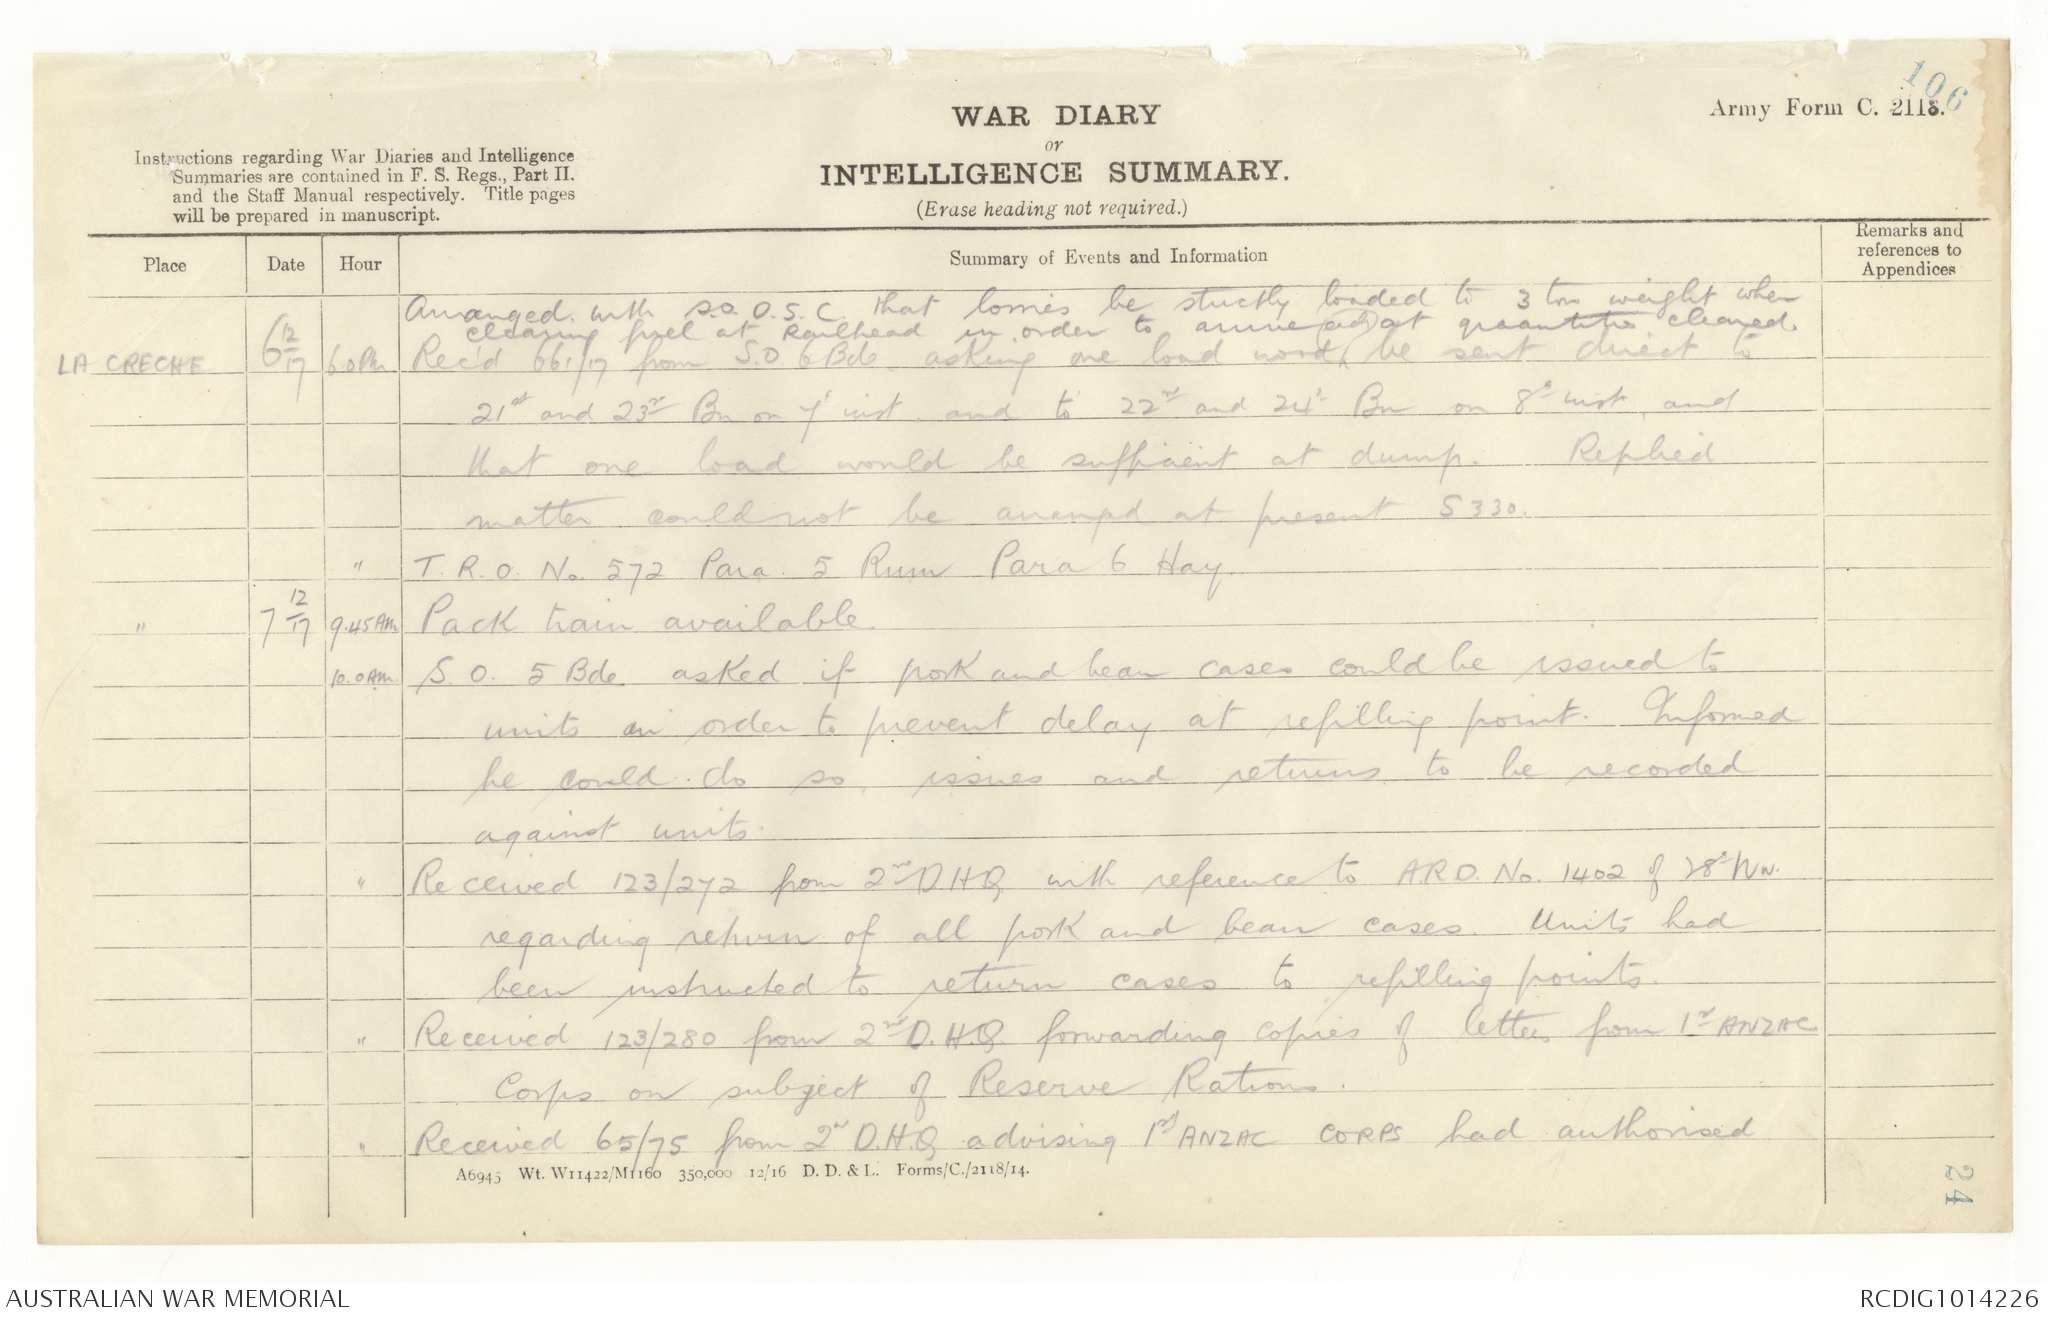 106
Army Form C. 2118.
WAR DIARY
or
INTELLIGENCE SUMMARY.
(Erase heading not required.)
Instructions regarding War Diaries and Intelligence
Summaries are contained in F. S. Regs., Part II.
and the Staff Manual respectively. Title pages
will be prepared in manuscript.
Place Date Hour Summary of Events and Information Remarks and references to Appendices
Arranged with S.S.O.S.C. that lorries be strictly loaded to 3 ton weight when
clearing fuel at Railhead in order to arrive at quantities cleared.
LA CRECHE 6 12/17 6.0 Pm Rec'd 661/17 from S.O 6 Bde asking one load wood be sent direct to
21st and 23rd Bn on 7th inst and to 22nd and 24th Bn on 8th inst, and
that one load would be sufficient at dump. Replied
matter could not be arranged at present S330.
" T.R.O. No. 572 Para 5 Rum Para 6 Hay.
" 7 12/17 9.45 Am Pack train available.
10.0 Am. S.O. 5 Bde asked if pork and bean cases could be issued to
units in order to prevent delay at refilling point. Informed
he could do so, issues and returns to be recorded
against units.
" Received 123/272 from 2nd D.H.Q. with reference to A.R.O. No. 1402 of 28th Nov.
regarding return of all pork and bean cases. Units had
been instructed to return cases to refilling points.
" Received 123/280 from 2nd D.H.Q. forwarding copies of letters from 1st ANZAC
Corps on subject of Reserve Rations.
" Received 65/75 from 2nd D.H.Q. advising 1st ANZAC CORPS had authorised
A6945 Wt. W11422/M1160 350,000 12/16 D. D. & L. Forms/C./2118/14.
24
AUSTRALIAN WAR MEMORIAL
RCDIG1014226